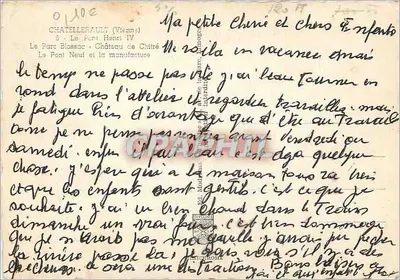 0,10 €
CHATELLERAULT (Vienne)
8 - Le Pont Henri IV
Le Parc Blossac - Château de Chitré
Le Pont Neuf et la manufacture
Ma petite Cherie et chers Enfants
Me voila en vacances mais
le temps ne passe pas vite j'ai beau tourner en
rond dans l'atelier et regarder travailler mais
je fatigue bien d'avantage que d'être au travail
je ne pense pas avant vendredi ou
samedi. enfin il fait beau c'est deja quelque
chose. j'espère qui a la maison tous va bien
et que les enfants sont gentils. c'est ce que je
souhaite. j'ai eu bien chaud dans le Train
dimanche un vrai four. c'est bien dommage
que je n'avait pas ma gaule j'aurais pu pecher
la rivière passe la je vais voir si il y a des
pecheurs. sa sera une distraction. Bons baisers